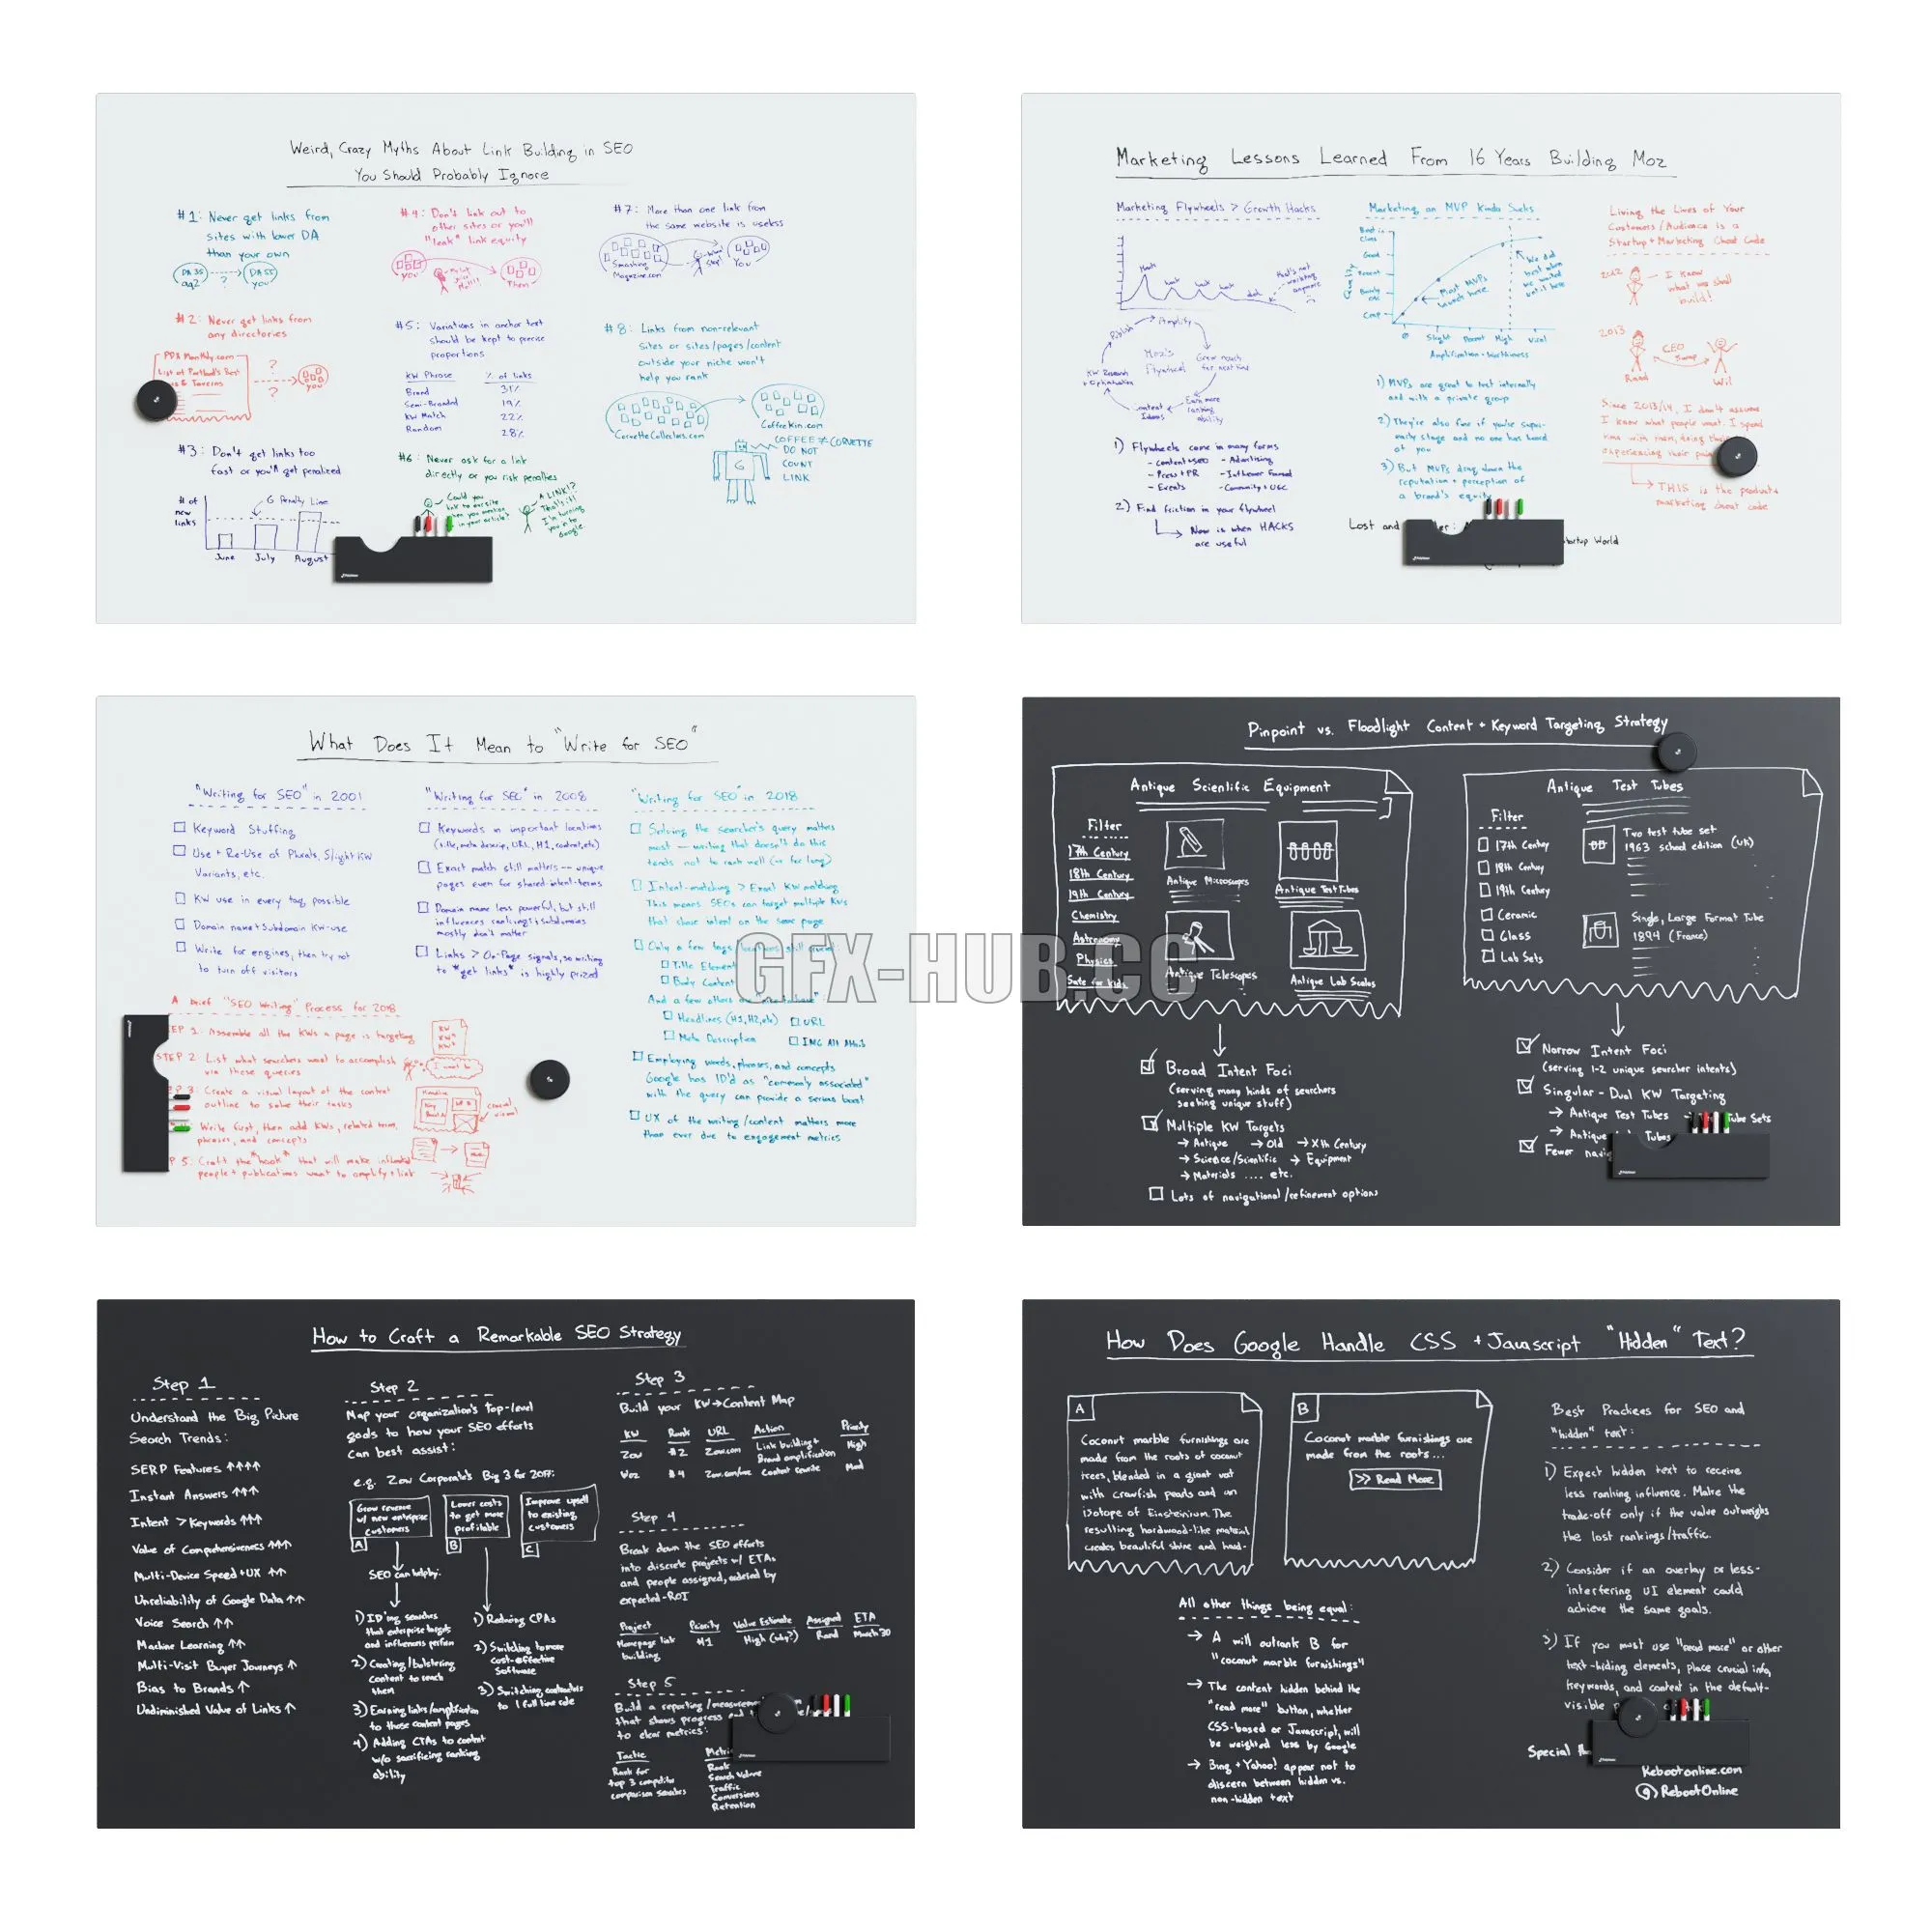 Weird, Crazy Myths About Link Building in SEO
You Should Probably Ignore
#1: Never get links from
sites with lower DA
than your own
DA 35
DA 55
you
?
#2: Never get links from
any directories
PDX Monthly.com
List of Portland's Best
& Taverns
?
?
you
#3: Don't get links too
fast or you'll get penalized
# of
new
links
G Penalty Line
June July August
#4: Don't link out to
other sites or you'll
"leak" link equity
you
Them
#5: Variations in anchor text
should be kept to precise
proportions
KW Phrase % of links
Brand 31%
Semi-Branded 19%
KW Match 22%
Random 28%
#6: Never ask for a link
directly or you risk penalties
Could you
link to our site
when you mention
in your article?
A LINK!?
That's it!
I'm turning
you in to
Google.
#7: More than one link from
the same website is useless
Smashing
Magazine.com
You
#8: Links from non-relevant
sites or sites/pages/content
outside your niche won't
help you rank
CorvetteCollectors.com
CoffeeKin.com
G
COFFEE ≠ CORVETTE
DO NOT
COUNT
LINK
Marketing Lessons Learned From 16 Years Building Moz
Marketing Flywheels > Growth Hacks
Hack
hack
hack
hack
that's not
working
anymore
Publish
Amplify
Grow reach
for next time
Earn more
ranking
ability
Content
Ideas
KW Research
+ Optimization
Moz's
Flywheel
1) Flywheels come in many forms
- Content + SEO - Advertising
- Press + PR - Influencer Focused
- Events - Community + UGC
2) Find friction in your flywheel
Now is when HACKS
are useful
Marketing an MVP Kinda Sucks
Best in
Class
Good
Decent
Barely
OK
Crap
Quality
Most MVPs
launch here
We did
best when
we waited
until here
0 Slight Decent High Viral
Amplification-Worthiness
1) MVPs are great to test internally
and with a private group
2) They're also fine if you're super-
early stage and no one has heard
of you
3) But MVPs drag down the
reputation + perception of
a brand's equity
Living the Lives of Your
Customers/Audience is a
Startup + Marketing Cheat Code
2012
I know
what we shall
build!
2013
CEO
Swap
Rand Wil
Since 2013/14, I don't assume
I know what people want. I spend
time with them, doing
experiencing their
THIS is the product +
marketing cheat code
Lost and
Startup World
What Does It Mean to "Write for SEO"
"Writing for SEO" in 2001
Keyword Stuffing
Use + Re-Use of Phrases, Slight KW
Variants, etc.
KW use in every tag possible
Domain name + Subdomain KW-use
Write for engines, then try not
to turn off visitors
"Writing for SEO" in 2008
Keywords in important locations
(title, meta descrip, URL, H1, content, etc)
Exact match still matters -- unique
pages even for shared-intent-terms
Domain name less powerful, but still
influences rankings; subdomains
mostly don't matter
Links > On-Page signals, so writing
to *get links* is highly prized
"Writing for SEO" in 2018
Solving the searcher's query matters
most — writing that doesn't do this
tends not to rank well (or for long)
Intent-matching > Exact KW matching
This means SEOs can target multiple KWs
that share intent on the same page
Only a few tags
Title Element
Body Content
And a few others are
Headlines (H1, H2, etc) URL
Meta Description IMG Alt Attrib
Employing words, phrases, and concepts
Google has ID'd as "commonly associated"
with the query can provide a serious boost
UX of the writing/content matters more
than ever due to engagement metrics
A brief "SEO Writing" Process for 2018
EP 1: Assemble all the KWs a page is targeting
STEP 2 List what searchers want to accomplish
via those queries
P 3: Create a visual layout of the content
outline to solve their tasks
Write first, then add KWs, related terms,
phrases, and concepts
P 5: Craft the "hook" that will make influential
people + publications want to amplify + link
GFX-HUB.CC
Pinpoint vs. Floodlight Content + Keyword Targeting Strategy
Antique Scientific Equipment
Filter
17th Century
18th Century
19th Century
Chemistry
Astronomy
Physics
Safe for kids
Antique Microscopes
Antique Test Tubes
Antique Telescopes
Antique Lab Scales
Broad Intent Foci
(serving many kinds of searchers
seeking unique stuff)
Multiple KW Targets
→ Antique → Old → Xth Century
→ Science/Scientific → Equipment
→ Materials .... etc.
Lots of navigational/refinement options
Antique Test Tubes
Filter
17th Century
18th Century
19th Century
Ceramic
Glass
Lab Sets
Two test tube set
1963 school edition (UK)
Single, Large Format Tube
1894 (France)
Narrow Intent Foci
(serving 1-2 unique searcher intents)
Singular - Dual KW Targeting
→ Antique Test Tubes
Tube Sets
→ Antique Tubes
Fewer navi
How to Craft a Remarkable SEO Strategy
Step 1
Understand the Big Picture
Search Trends:
SERP Features ↑↑↑↑
Instant Answers ↑↑↑
Intent > Keywords ↑↑↑
Value of Comprehensiveness ↑↑↑
Multi-Device Speed + UX ↑↑
Unreliability of Google Data ↑↑
Voice Search ↑↑
Machine Learning ↑↑
Multi-Visit Buyer Journeys ↑
Bias to Brands ↑
Undiminished Value of Links ↑
Step 2
Map your organization's top-level
goals to how your SEO efforts
can best assist:
e.g. Zow Corporate's Big 3 for 2017:
Grow revenue
w/ new enterprise
customers
A
Lower costs
to get more
profitable
B
Improve upsell
to existing
customers
C
SEO can help by:
1) ID'ing searches
that enterprise targets
and influencers perform
2) Creating/bolstering
content to reach
them
3) Earning links/amplification
to those content pages
4) Adding CTAs to content
w/o sacrificing ranking
ability
1) Reducing CPAs
2) Switching to more
cost-effective
software
3) Switching contractors
to 1 full time role
Step 3
Build your KW→Content Map
KW Rank URL Action Priority
Zow #2 Zow.com Link building + Brand amplification High
Woz #4 Content rewrite Med
Step 4
Break down the SEO efforts
into discrete projects w/ ETAs
and people assigned, ordered by
expected-ROI
Project Priority Value Estimate Assigned ETA
Homepage link building #1 High (why?) Rand March 30
Step 5
Build a reporting/measurement
that shows progress and
to clear metrics:
Tactic
Rank for
top 3 competitor
comparison searches
Metri
Rank
Search Volume
Traffic
Conversions
Retention
How Does Google Handle CSS + Javascript "Hidden" Text?
A
Coconut marble furnishings are
made from the roots of coconut
trees, blended in a giant vat
with crawfish pearls and an
isotope of Einsteinium. The
resulting hardwood-like material
creates beautiful shine and hard-
B
Coconut marble furnishings are
made from the roots...
>> Read More
All other things being equal:
→ A will outrank B for
"coconut marble furnishings"
→ The content hidden behind the
"read more" button, whether
CSS-based or Javascript, will
be weighted less by Google
→ Bing + Yahoo! appear not to
discern between hidden vs.
non-hidden text
Best Practices for SEO and
"hidden" text:
1) Expect hidden text to receive
less ranking influence. Make the
trade-off only if the value outweighs
the lost rankings/traffic.
2) Consider if an overlay or less-
interfering UI element could
achieve the same goals.
3) If you must use "read more" or other
text-hiding elements, place crucial info,
keywords, and content in the default-
visible
Special
Rebootonline.com
@RebootOnline